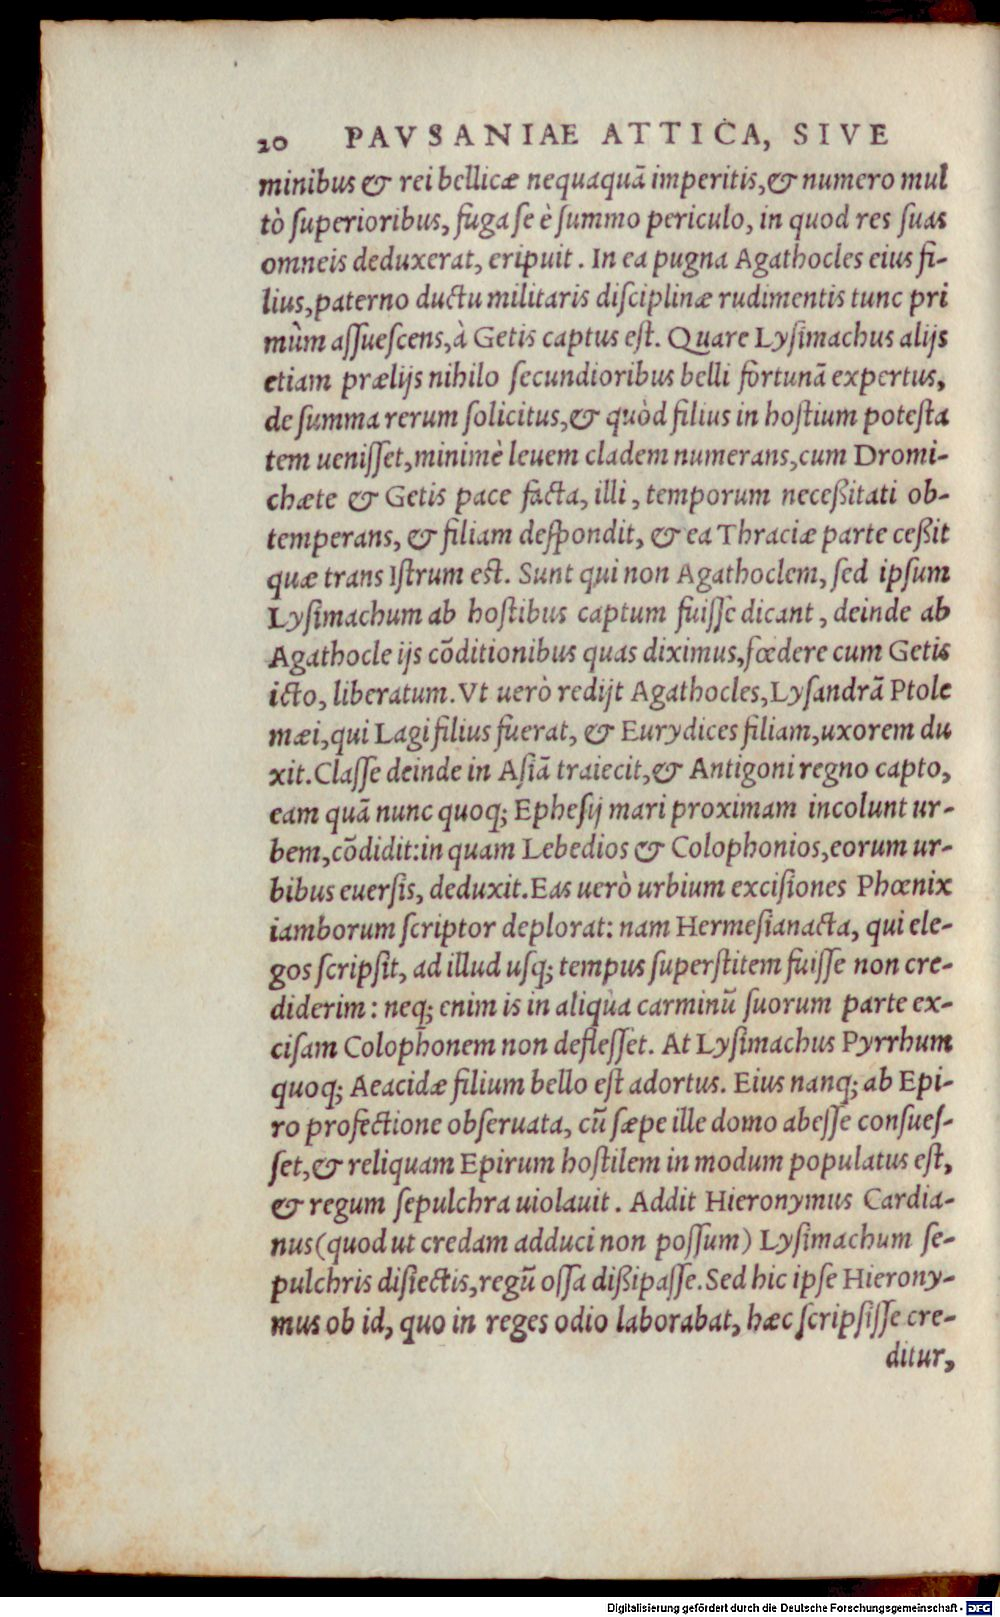 20 PAVSANIAE ATTICA, SIVE
minibus & rei bellicæ nequaquã imperitis, & numero mul
tò ſuperioribus, fuga ſe è ſummo periculo, in quod res ſuas
omneis deduxerat, eripuit. In ea pugna Agathocles eius fi-
lius, paterno ductu militaris diſciplinæ rudimentis tunc pri
mùm aſſueſcens, à Getis captus eſt. Quare Lyſimachus alijs
etiam prælijs nihilo ſecundioribus belli fortunã expertus,
de ſumma rerum ſolicitus, & quòd filius in hoſtium poteſta
tem ueniſſet, minimè leuem cladem numerans, cum Dromi-
chæte & Getis pace facta, illi, temporum neceßitati ob-
temperans, & filiam deſpondit, & ea Thraciæ parte ceßit
quæ trans Iſtrum est. Sunt qui non Agathoclem, ſed ipſum
Lyſimachum ab hoſtibus captum fuiſſe dicant, deinde ab
Agathocle ijs cõditionibus quas diximus, fœdere cum Getis
icto, liberatum. Vt uerò redijt Agathocles, Lyſandrã Ptole
mæi, qui Lagi filius fuerat, & Eurydices filiam, uxorem du
xit. Claſſe deinde in Aſiã traiecit, & Antigoni regno capto,
eam quã nunc quoq; Epheſij mari proximam incolunt ur-
bem, cõdidit: in quam Lebedios & Colophonios, eorum ur-
bibus euerſis, deduxit. Eas uerò urbium exciſiones Phœnix
iamborum ſcriptor deplorat: nam Hermeſianacta, qui ele-
gos ſcripſit, ad illud uſq; tempus ſuperſtitem fuiſſe non cre-
diderim: neq; enim is in aliqua carminũ ſuorum parte ex-
ciſam Colophonem non defleſſet. At Lyſimachus Pyrrhum
quoq; Aeacidæ filium bello eſt adortus. Eius nanq; ab Epi-
ro profectione obſeruata, cũ ſæpe ille domo abeſſe conſueſ-
ſet, & reliquam Epirum hoſtilem in modum populatus eſt,
& regum ſepulchra uiolauit. Addit Hieronymus Cardia-
nus (quod ut credam adduci non poſſum) Lyſimachum ſe-
pulchris diſiectis, regũ oſſa dißipaſſe. Sed hic ipſe Hierony-
mus ob id, quo in reges odio laborabat, hæc ſcripſiſſe cre-
ditur,
Digitalisierung gefördert durch die Deutsche Forschungsgemeinschaft - DFG